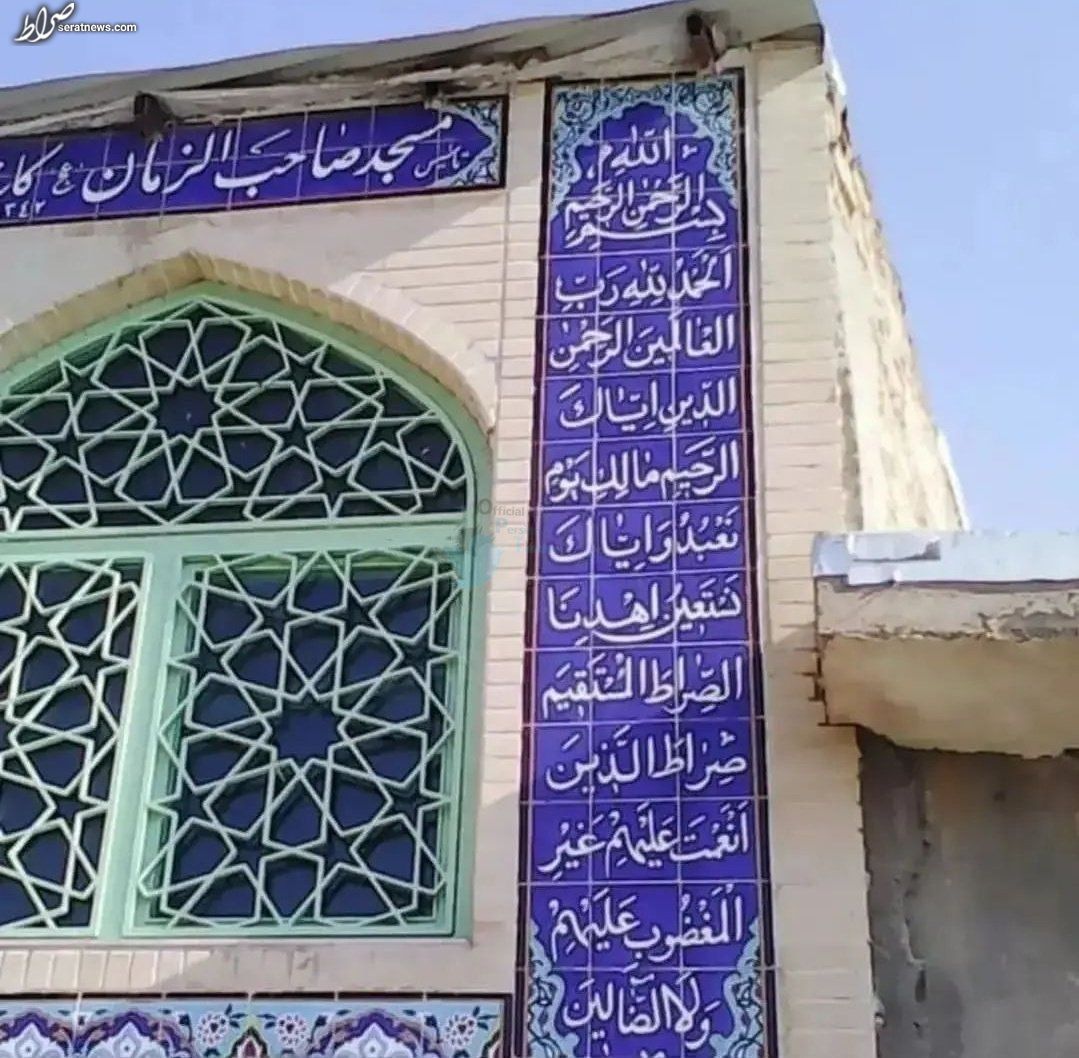 صراط
seratnews.com
مسجد صاحب الزمان عج
تاسیس
بسم الله الرحمن الرحیم
اَلْحَمْدُ لِلّٰهِ رَبِّ
العٰالَمینَ الرَّحْمٰنِ
الدّینِ اِیّٰاكَ
الرَّحیمِ مٰالِكِ یَوْمِ
نَعْبُدُ وَ اِیّٰاكَ
نَسْتَعینُ اِهْدِنَا
الصِّرٰاطَ الْمُسْتَقیمَ
صِرٰاطَ الَّذینَ
اَنْعَمْتَ عَلَیْهِمْ غَیْرِ
الْمَغْضُوبِ عَلَیْهِمْ
وَلَا الضّٰالّینَ
Official